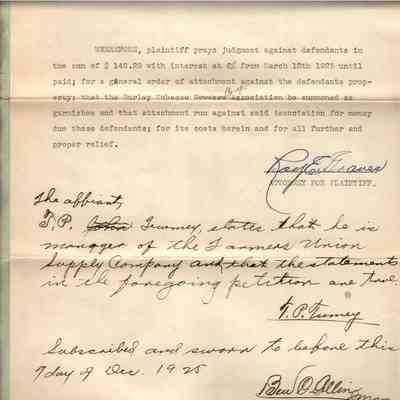 WHEREFORE, plaintiff prays judgment against defendants in
the sum of $ 140.29 with interest at 6% from March 18th 1925 until
paid; for a general order of attachment against the defendants prop-
erty; that the Burley Tobacco Growers Association be summoned as
garnishee and that attachment run against said association for money
due these defendants; for its costs herein and for all further and
proper relief.
ATTORNEY FOR PLAINTIFF.
The affiant,
T.P. John Turney, states that he is
manager of the Farmers Union
Supply Company and that the statements
in the foregoing petition are true.
T.P. Turney
Subscribed and sworn to before this
7 day of Dec. 1925
Ben D. Allin